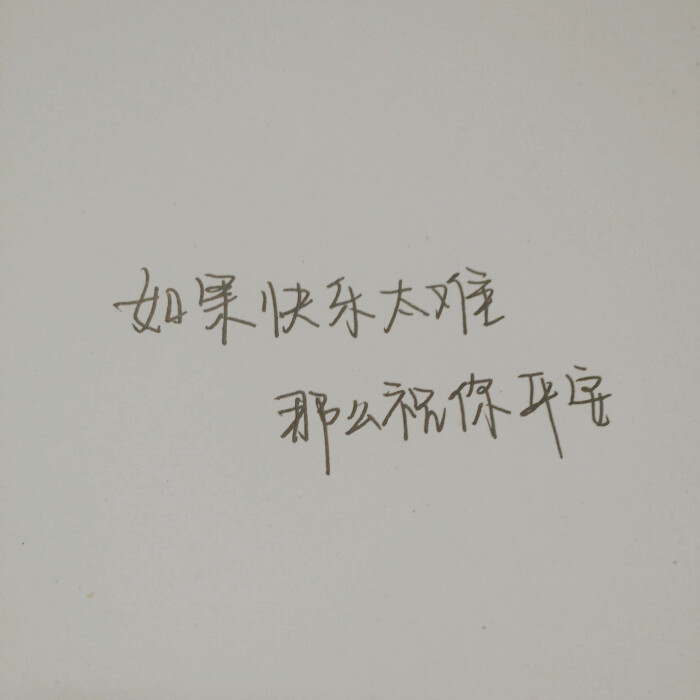 如果快乐太难
那么祝你平安